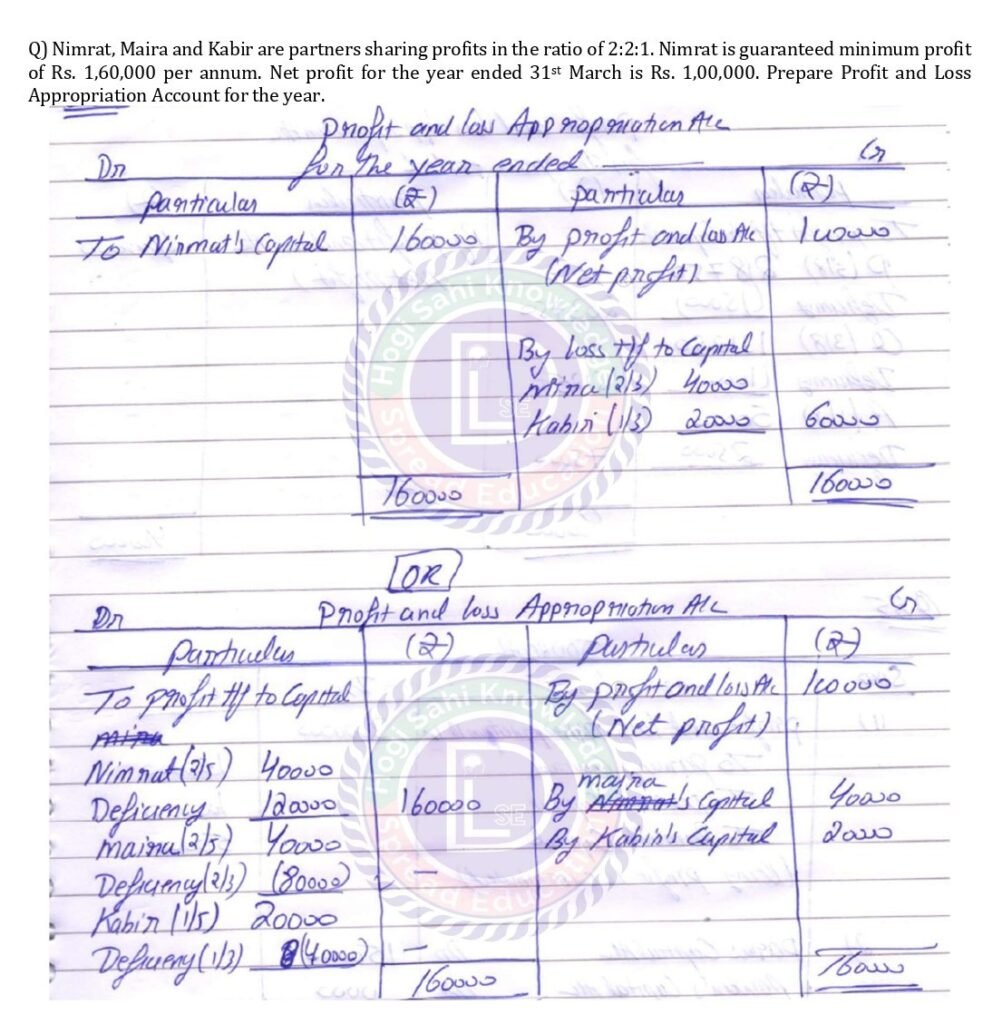 Q) Nimrat, Maira and Kabir are partners sharing profits in the ratio of 2:2:1. Nimrat is guaranteed minimum profit
of Rs. 1,60,000 per annum. Net profit for the year ended 31st March is Rs. 1,00,000. Prepare Profit and Loss
Appropriation Account for the year.
Profit and loss Appropriation A/c
Dr for the year ended Cr
particulars (₹) particulars (₹)
To Nirmat's Capital 160000 By profit and loss A/c 100000
(Net profit)
By loss t/f to Capital
(2/3) 40000
Kabir (1/3) 20000 60000
160000 160000
OR
Dr Profit and loss Appropriation A/c Cr
Particulars (₹) Particulars (₹)
To profit t/f to Capital By profit and loss A/c 100000
(Net profit)
Nimrat (2/5) 40000 maira
Deficiency 120000 160000 By Capital 40000
maira (2/5) 40000 By Kabir's Capital 20000
Deficiency (2/3) (80000) -
Kabir (1/5) 20000
Deficiency (1/3) (40000) -
160000 160000
Hogi Sahi Knowledge
Spread Education
LSE